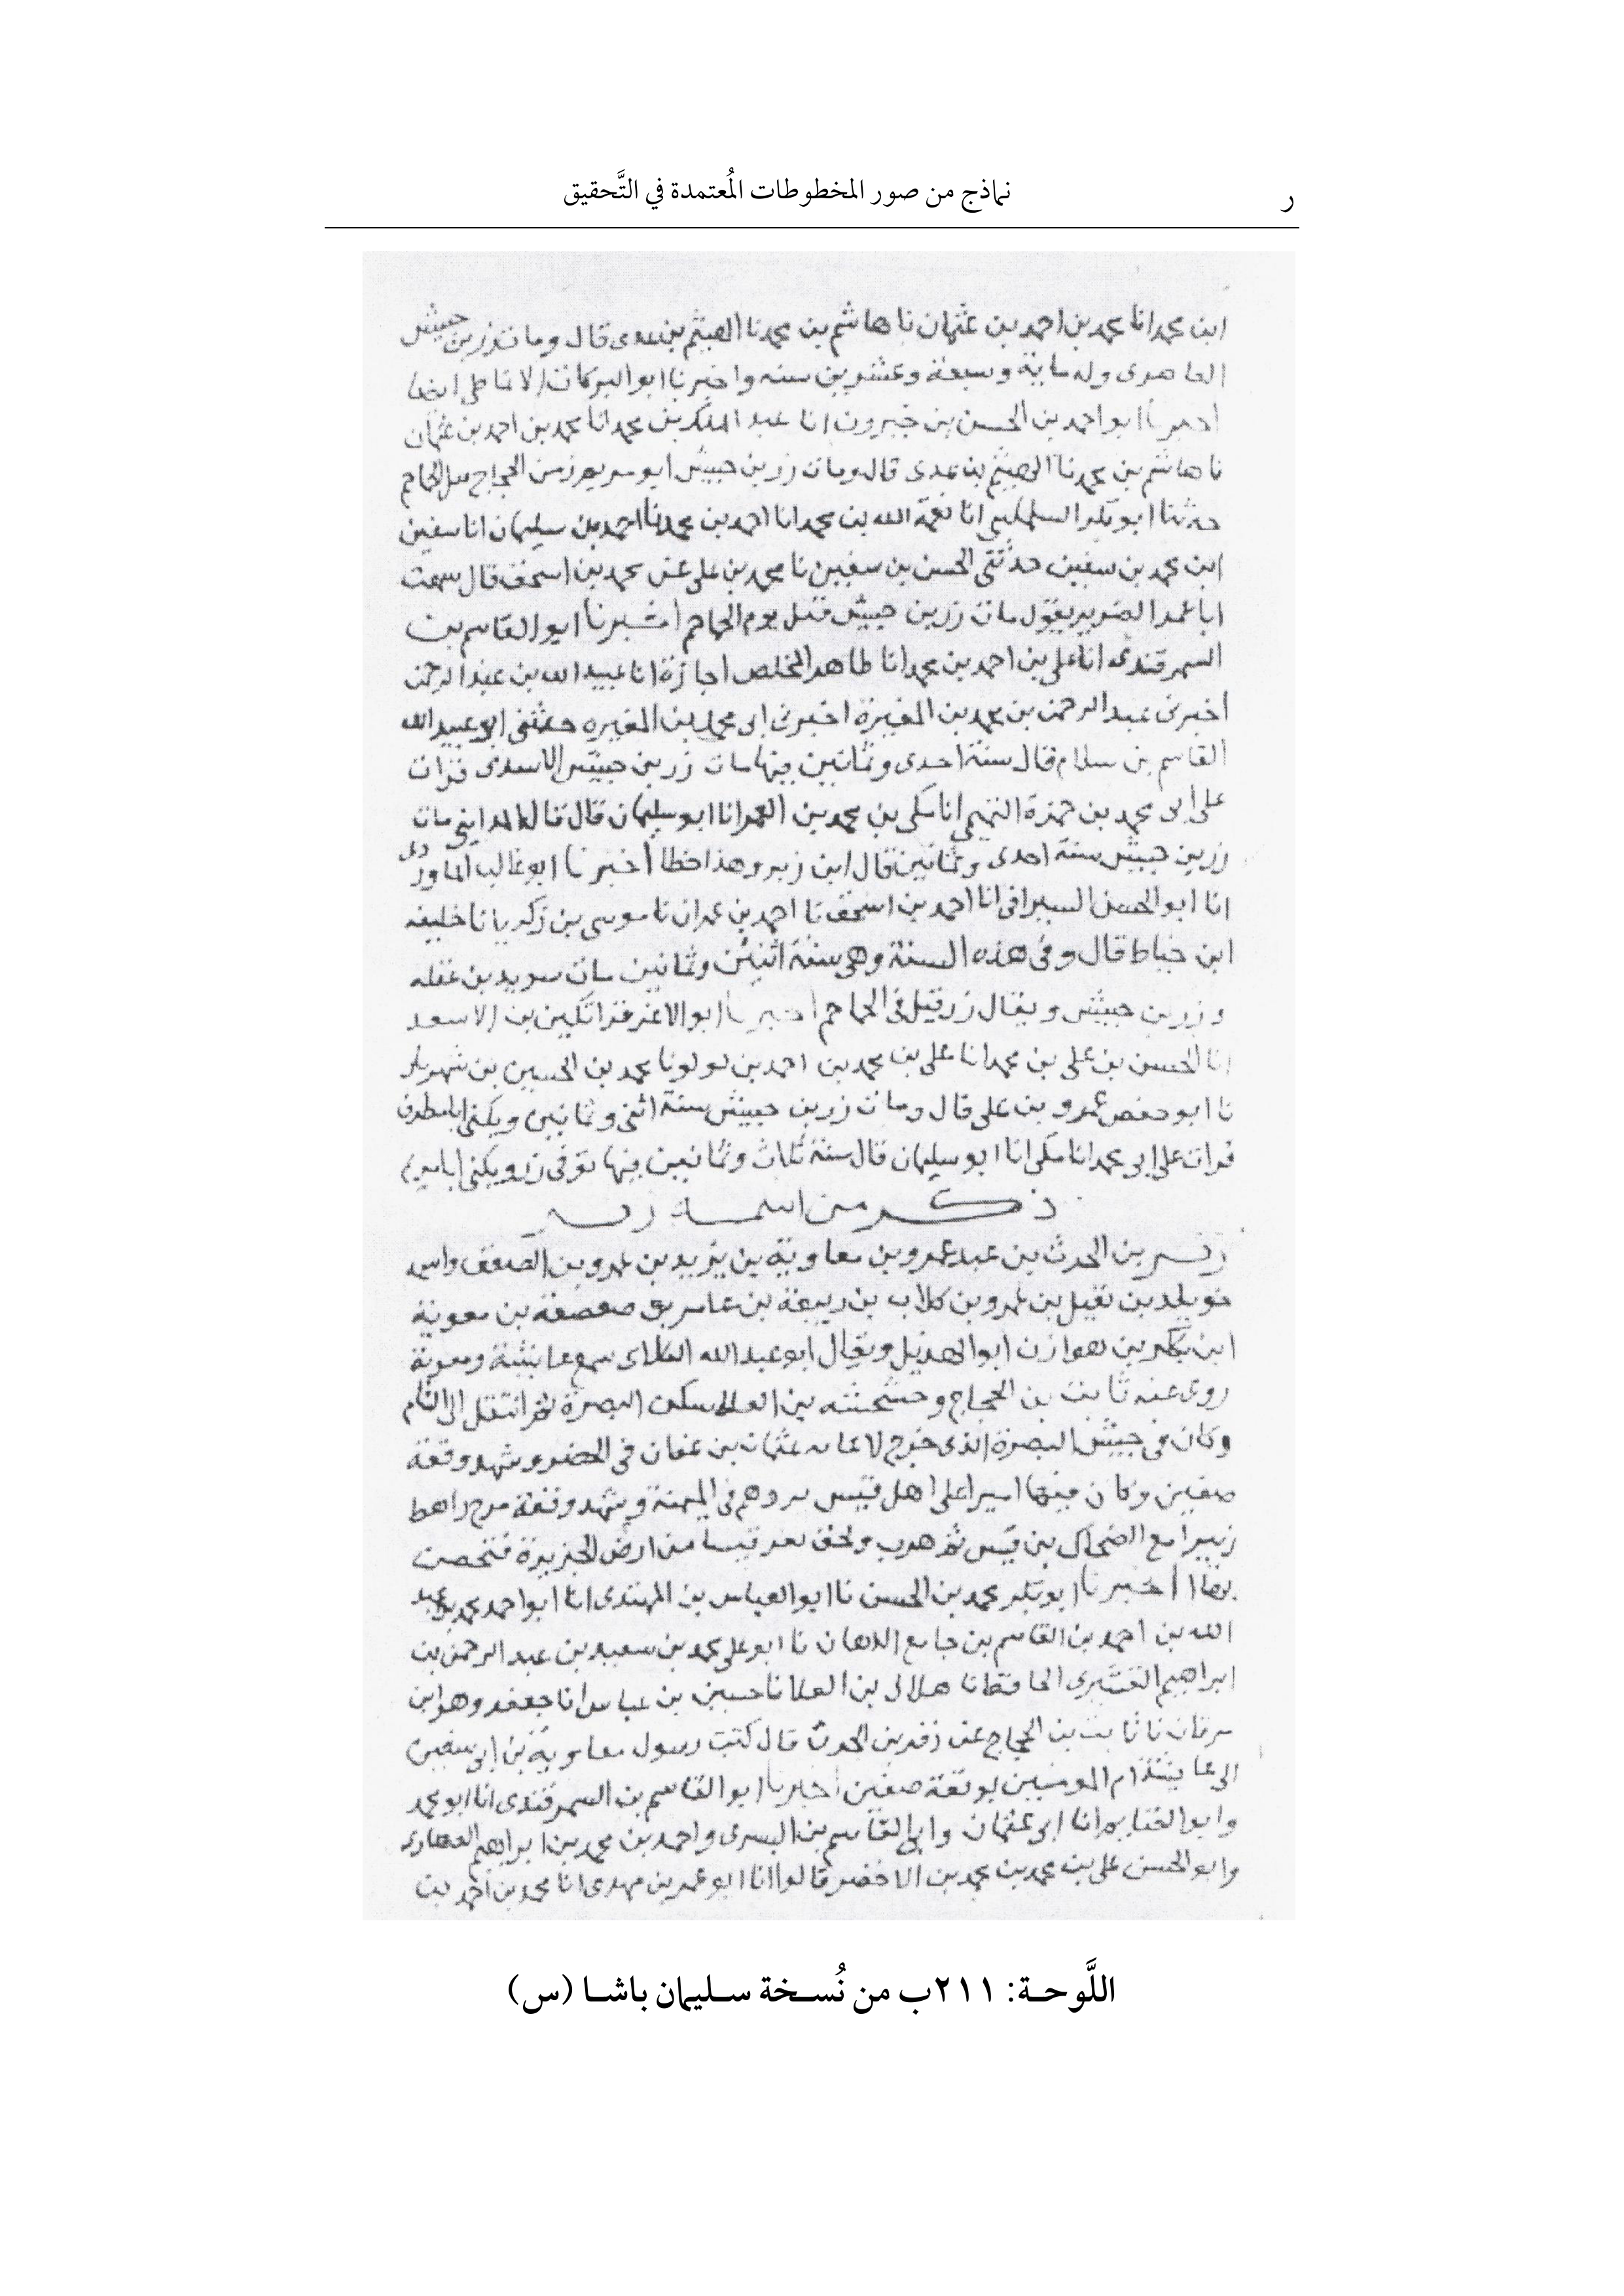 ر
نماذج من صور المخطوطات المُعتمدة في التَّحقيق
ابن محمد انا محمد بن احمد بن عثمان نا هاشم بن محمد نا الهيثم بن عدى قال ومات زر بن حبيش
وله ماية وسبعة وعشرين سنه واخبرنا ابو البركات الانماطى ايضا
ابو احمد بن الحسن بن خيرون انا عبد الملك بن محمد انا محمد بن احمد بن عثمان
نا هاشم بن محمد نا الهيثم بن عدى قال ومات زر بن حبيش ابو مريم زمن الحجاج
حدثنا ابو بكر انا نعمة الله بن محمد انا احمد بن محمد نا احمد بن سليمان انا سفين
ابن محمد بن سفين حدثني الحسن بن سفين نا محمد بن على عن محمد بن اسحق قال سمعت
ابا عمر الضرير يقول مات زر بن حبيش قتل يوم الجماجم اخبرنا ابو القاسم بن
السمرقندى انا على بن احمد بن محمد انا طاهر المخلص اجازة انا عبيد الله بن عبد الرحمن
اخبرنى عبد الرحمن بن محمد بن المغيرة اخبرنى ابى محمد بن المغيره حدثنى ابو عبيد الله
القاسم بن سلام قال سنة احدى وثمانين فيها مات زر بن حبيش الاسدى قرات
على ابى محمد بن حمزة التميمي انا مكى بن محمد بن الغمر انا ابو سليمان قال قال المدايني مات
زر بن حبيش سنة احدى وثمانين قال ابن زبر وهذا خطا اخبرنا ابو غالب الماوردى
انا ابو الحسن السيرافى انا احمد بن اسحق نا احمد بن عمران نا موسى بن زكريا نا خليفه
ابن خياط قال وفى هذه السنة وهى سنة اثنين وثمانين مات سويد بن غفله
وزر بن حبيش ويقال زر قتل فى الجماجم اخبرنا ابو الاعز قراتكين بن الاسعد
انا الحسن بن على بن محمد انا على بن محمد بن احمد بن لولو نا محمد بن الحسين بن شهريار
نا ابو حفص عمرو بن على قال ومات زر بن حبيش سنة اثنى وثمانين ويكنى ابا مطرف
قرات على ابى محمد انا مكى انا ابو سليمان قال سنة ثلاث وثمانين فيها توفى زر ويكنى ابا مريم
ذكر من اسمه زفر
زفر بن الحرث بن عبد عمرو بن معاوية بن يزيد بن عمرو بن الصعق واسمه
خويلد بن نفيل بن عمرو بن كلاب بن ربيعة بن عامر بن صعصعة بن معوية
ابن بكر بن هوازن ابو الهذيل ويقال ابو عبد الله الكلابى سمع عايشة ومعوية
روى عنه ثابت بن الحجاج سكن البصرة ثم انتقل الى الشام
وكان فى جيش البصرة الذى خرج لاعانه عثمان بن عفان فى الحصر وشهد وقعة
صفين وكان فيها اميرا على اهل قنسرين وهم فى الميمنة وشهد وقعة مرج راهط
زبيرا مع الضحاك بن قيس ثم هرب ولحق بقرقيسا من ارض الجزيرة فتحصن
بها اخبرنا ابو بكر محمد بن الحسن نا ابو العباس بن المهتدى انا ابو احمد محمد بن عبد
الله بن احمد بن القاسم بن جامع الدهان نا ابو على محمد بن سعيد بن عبد الرحمن بن
ابراهيم القشيرى الحافظ نا هلال بن العلا نا حسين بن عياش انا جعفر وهو ابن
برقان نا ثابت بن الحجاج عن زفر بن الحرث قال كنت رسول معاوية بن ابى سفين
الى عايشة ام المومنين بوقعة صفين اخبرنا ابو القاسم بن السمرقندى انا ابو محمد
وابو الغنايم انا ابى عثمان وابو القاسم بن البسرى واحمد بن محمد بن ابراهيم
وابو الحسن على بن محمد بن محمد بن الاخضر قالوا انا ابو عمر بن مهدى انا محمد بن احمد بن
اللَّوحة: ٢١١ب من نُسخة سليمان باشا (س)